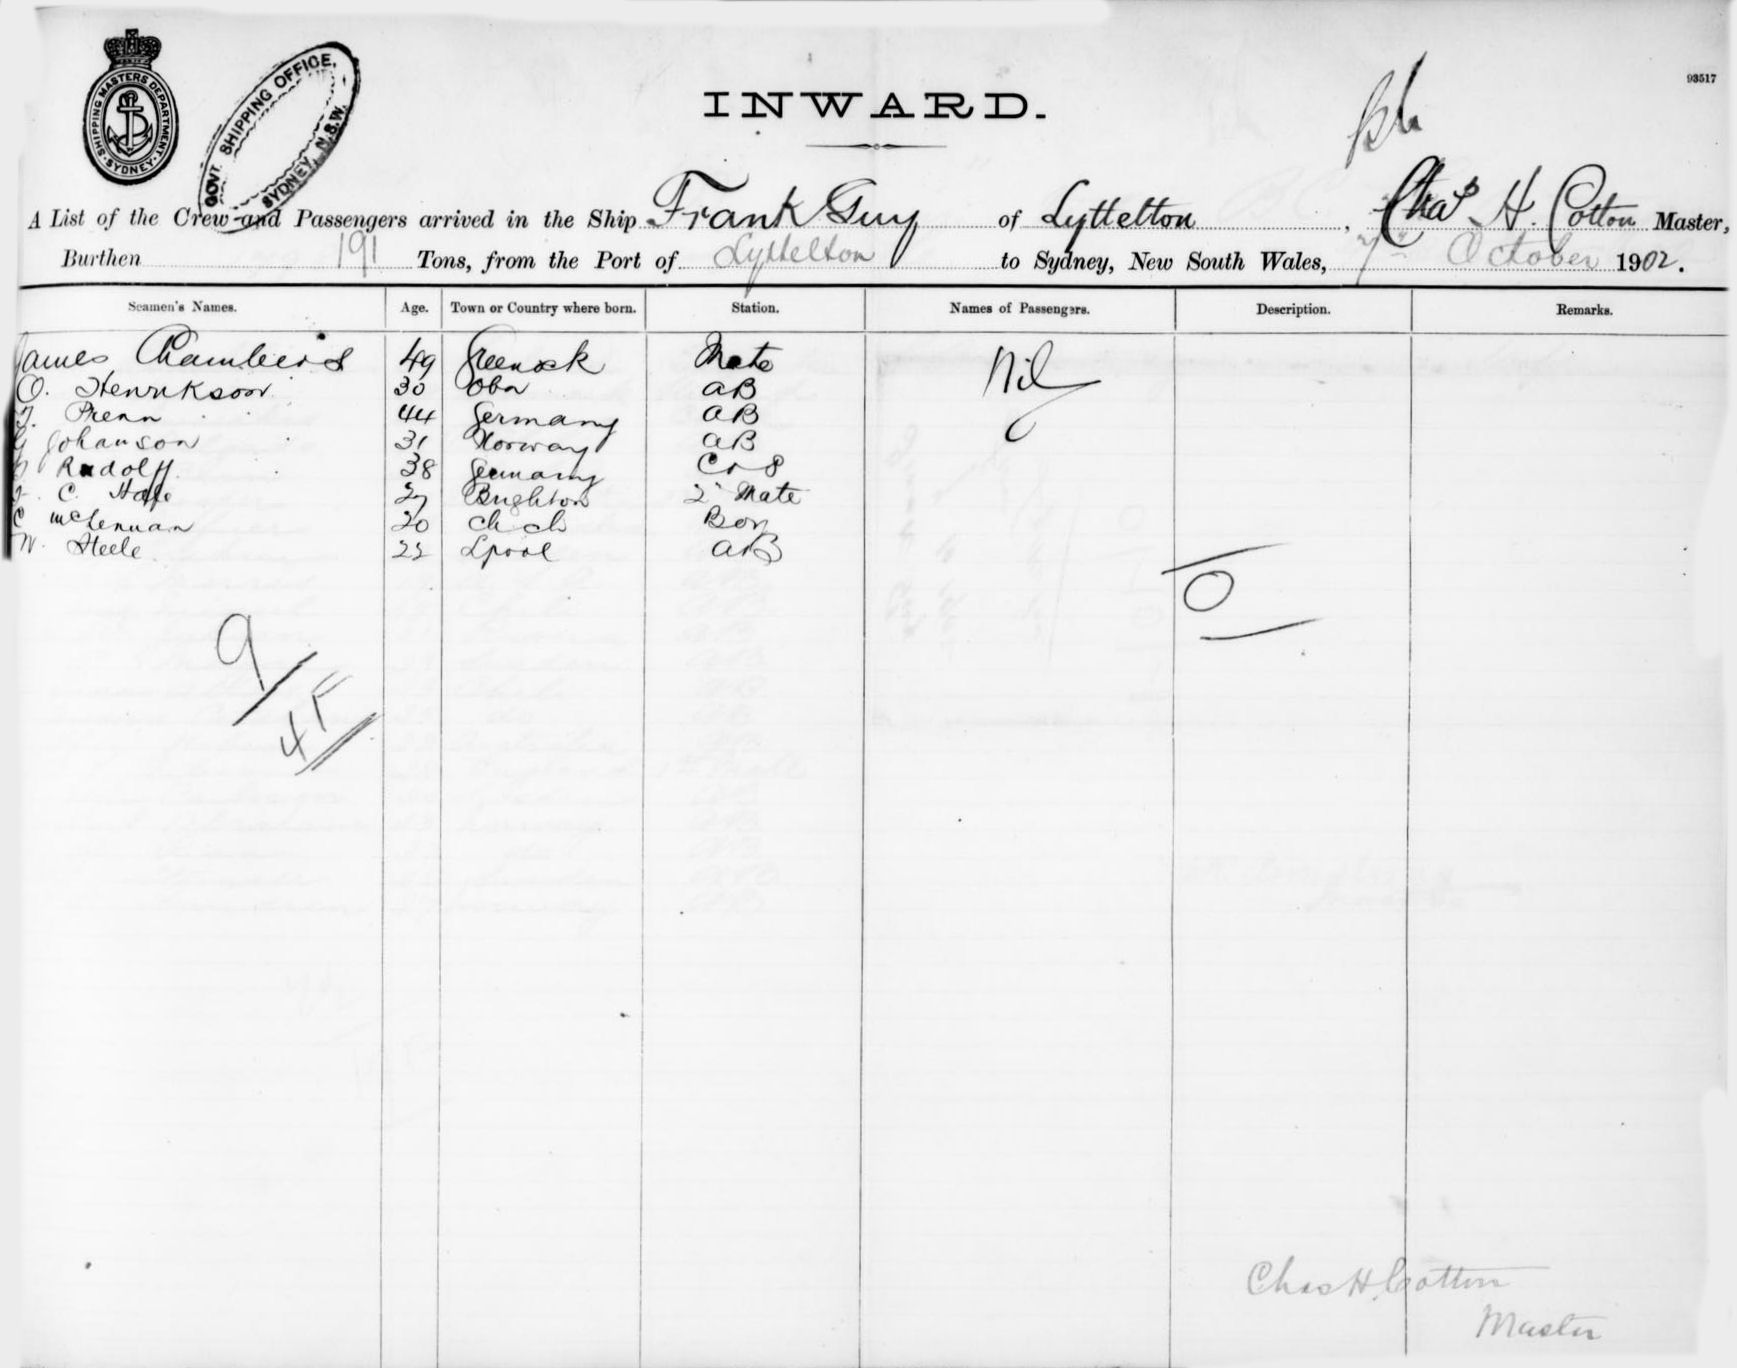 93517
SHIPPING MASTERS DEPARTMENT SYDNEY
GOVT. SHIPPING OFFICE,
SYDNEY, N.S.W.
INWARD.
A List of the Crew and Passengers arrived in the Ship Frank Guy of Lyttelton, Chas H. Cotton Master,
Burthen 191 Tons, from the Port of Lyttelton to Sydney, New South Wales, 7th October 1902.
Seamen's Names. Age. Town or Country where born. Station. Names of Passengers. Description. Remarks.
James Chambers 49 Greenock Mate Nil
O. Henrikson 30 AB
Prenn 44 Germany AB
Johanson 31 Norway AB
Rudolff 38 Germany
C. 27 Brighton 2 Mate
C McLennan 20 Ch Ch Boy
W. Steele 22 Lpool AB
9
45
0
Chas H Cotton
Master